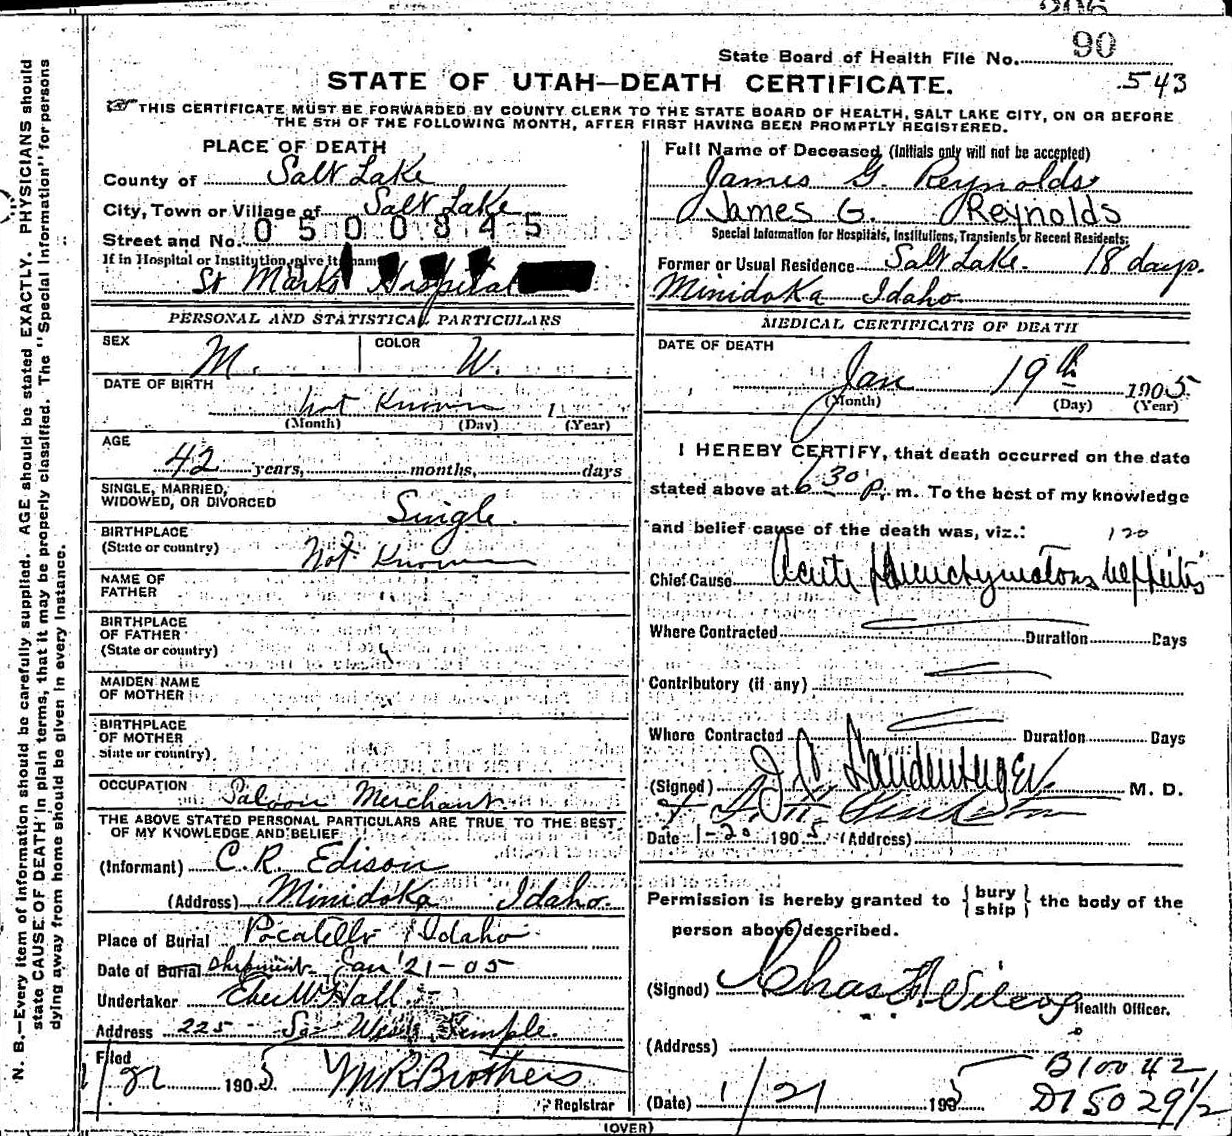 90
State Board of Health File No.
543
STATE OF UTAH—DEATH CERTIFICATE.
☞THIS CERTIFICATE MUST BE FORWARDED BY COUNTY CLERK TO THE STATE BOARD OF HEALTH, SALT LAKE CITY, ON OR BEFORE
THE 5TH OF THE FOLLOWING MONTH, AFTER FIRST HAVING BEEN PROMPTLY REGISTERED.
N. B.—Every item of information should be carefully supplied. AGE should be stated EXACTLY. PHYSICIANS should
state CAUSE OF DEATH in plain terms, that it may be properly classified. The "Special Information" for persons
dying away from home should be given in every instance.
PLACE OF DEATH
County of Salt Lake
City, Town or Village of Salt Lake
Street and No. 0500845
If in Hospital or Institution, give its name
St Marks Hospital
PERSONAL AND STATISTICAL PARTICULARS
SEX M. COLOR W.
DATE OF BIRTH
Not Known 1
(Month) (Day) (Year)
AGE
42 years, months, days
SINGLE, MARRIED,
WIDOWED, OR DIVORCED Single.
BIRTHPLACE
(State or country) Not Known
NAME OF
FATHER
BIRTHPLACE
OF FATHER
(State or country)
MAIDEN NAME
OF MOTHER
BIRTHPLACE
OF MOTHER
State or country)
OCCUPATION Saloon Merchant
THE ABOVE STATED PERSONAL PARTICULARS ARE TRUE TO THE BEST
OF MY KNOWLEDGE AND BELIEF
(Informant) C. R. Edison
(Address) Minidoka Idaho.
Place of Burial Pocatello Idaho
Date of Burial shipment Jan 21-05
Undertaker Eber W. Hall
Address 225 So West Temple.
Filed
1/21 1905 M R Brothers
Registrar
Full Name of Deceased (Initials only will not be accepted)
James G. Reynolds
James G. Reynolds
Special Information for Hospitals, Institutions, Transients or Recent Residents:
Former or Usual Residence Salt Lake. 18 days.
Minidoka Idaho
MEDICAL CERTIFICATE OF DEATH
DATE OF DEATH
Jan 19th 1905
(Month) (Day) (Year)
I HEREBY CERTIFY, that death occurred on the date
stated above at 6 30 P. m. To the best of my knowledge
and belief cause of the death was, viz.: 120
Chief Cause Acute Parenchymatous Nephritis
Where Contracted Duration Days
Contributory (if any)
Where Contracted Duration Days
(Signed) J. C. Landenberger M. D.
Date 1-20 1905 (Address)
Permission is hereby granted to { bury
ship } the body of the
person above described.
(Signed) Chas F. Wilcox Health Officer.
(Address)
B10042
(Date) 1/21 1905 D15029 1/2
(OVER)